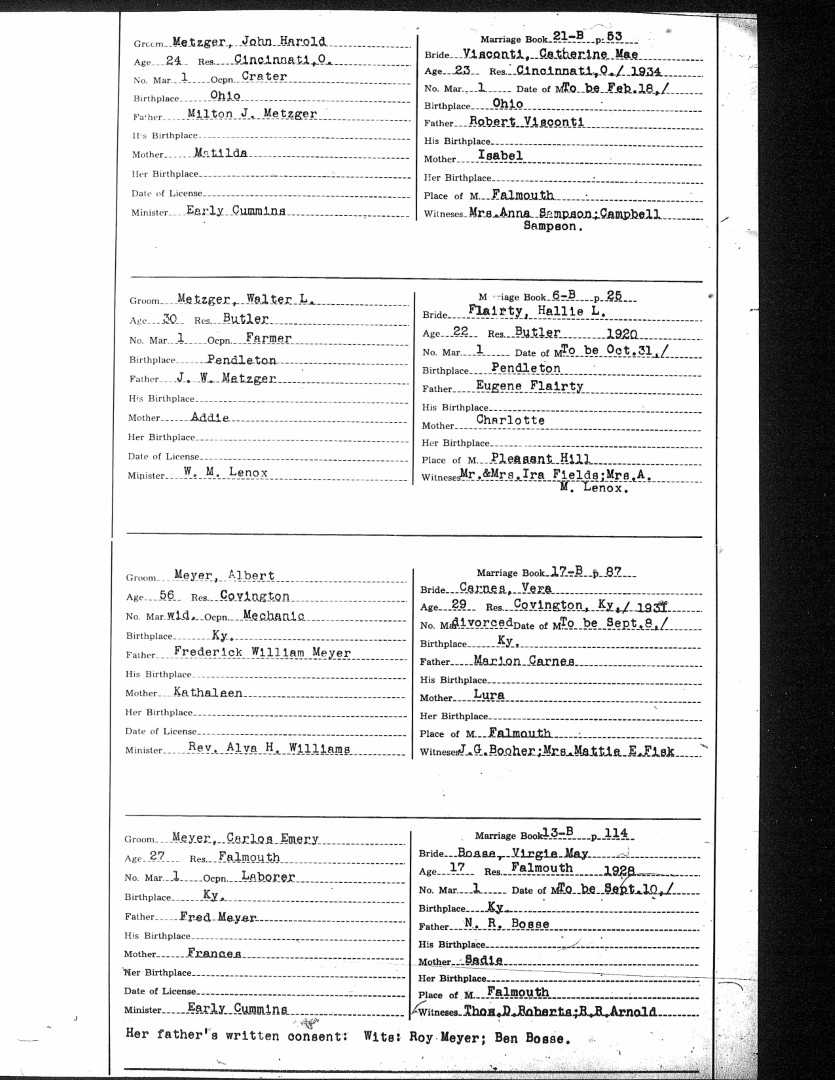 Groom Metzger, John Harold
Age 24 Res. Cincinnati,O.
No. Mar. 1 Ocpn. Crater
Birthplace Ohio
Father Milton J. Metzger
His Birthplace
Mother Matilda
Her Birthplace
Date of License
Minister Early Cummins
Marriage Book 21-B p. 53
Bride Visconti, Catherine Mae
Age 23 Res. Cincinnati,O./ 1934
No. Mar. 1 Date of M To be Feb.18,/
Birthplace Ohio
Father Robert Visconti
His Birthplace
Mother Isabel
Her Birthplace
Place of M. Falmouth
Witneses Mrs.Anna Sampson;Campbell
Sampson.
Groom Metzger, Walter L.
Age 30 Res. Butler
No. Mar. 1 Ocpn. Farmer
Birthplace Pendleton
Father J. W. Metzger
His Birthplace
Mother Addie
Her Birthplace
Date of License
Minister W. M. Lenox
M riage Book 6-B p. 25
Bride Flairty, Hallie L.
Age 22 Res. Butler 1920
No. Mar. 1 Date of M To be Oct.31,/
Birthplace Pendleton
Father Eugene Flairty
His Birthplace
Mother Charlotte
Her Birthplace
Place of M. Pleasant Hill
Witneses Mr.&Mrs.Ira Fields;Mrs.A.
M. Lenox.
Groom Meyer, Albert
Age 56 Res. Covington
No. Mar. wid. Ocpn. Mechanic
Birthplace Ky.
Father Frederick William Meyer
His Birthplace
Mother Kathaleen
Her Birthplace
Date of License
Minister Rev. Alva H. Williams
Marriage Book 17-B p. 87
Bride Carnes, Vera
Age 29 Res. Covington, Ky./
No. Ma divorced Date of M To be Sept.8,/
Birthplace Ky.
Father Marion Carnes
His Birthplace
Mother Lura
Her Birthplace
Place of M. Falmouth
Witneses J.G.Booher;Mrs.Mattie E.Fisk
Groom Meyer, Carlos Emery
Age 27 Res. Falmouth
No. Mar. 1 Ocpn. Laborer
Birthplace Ky.
Father Fred Meyer
His Birthplace
Mother Frances
Her Birthplace
Date of License
Minister Early Cummins
Marriage Book 13-B p. 114
Bride Bosse, Virgie May
Age 17 Res. Falmouth 1928
No. Mar. 1 Date of M To be Sept.10,/
Birthplace Ky.
Father N. R. Bosse
His Birthplace
Mother Sadie
Her Birthplace
Place of M. Falmouth
Witneses Thos.D.Roberts;R.R.Arnold
Her father's written consent: Wits: Roy Meyer; Ben Bosse.